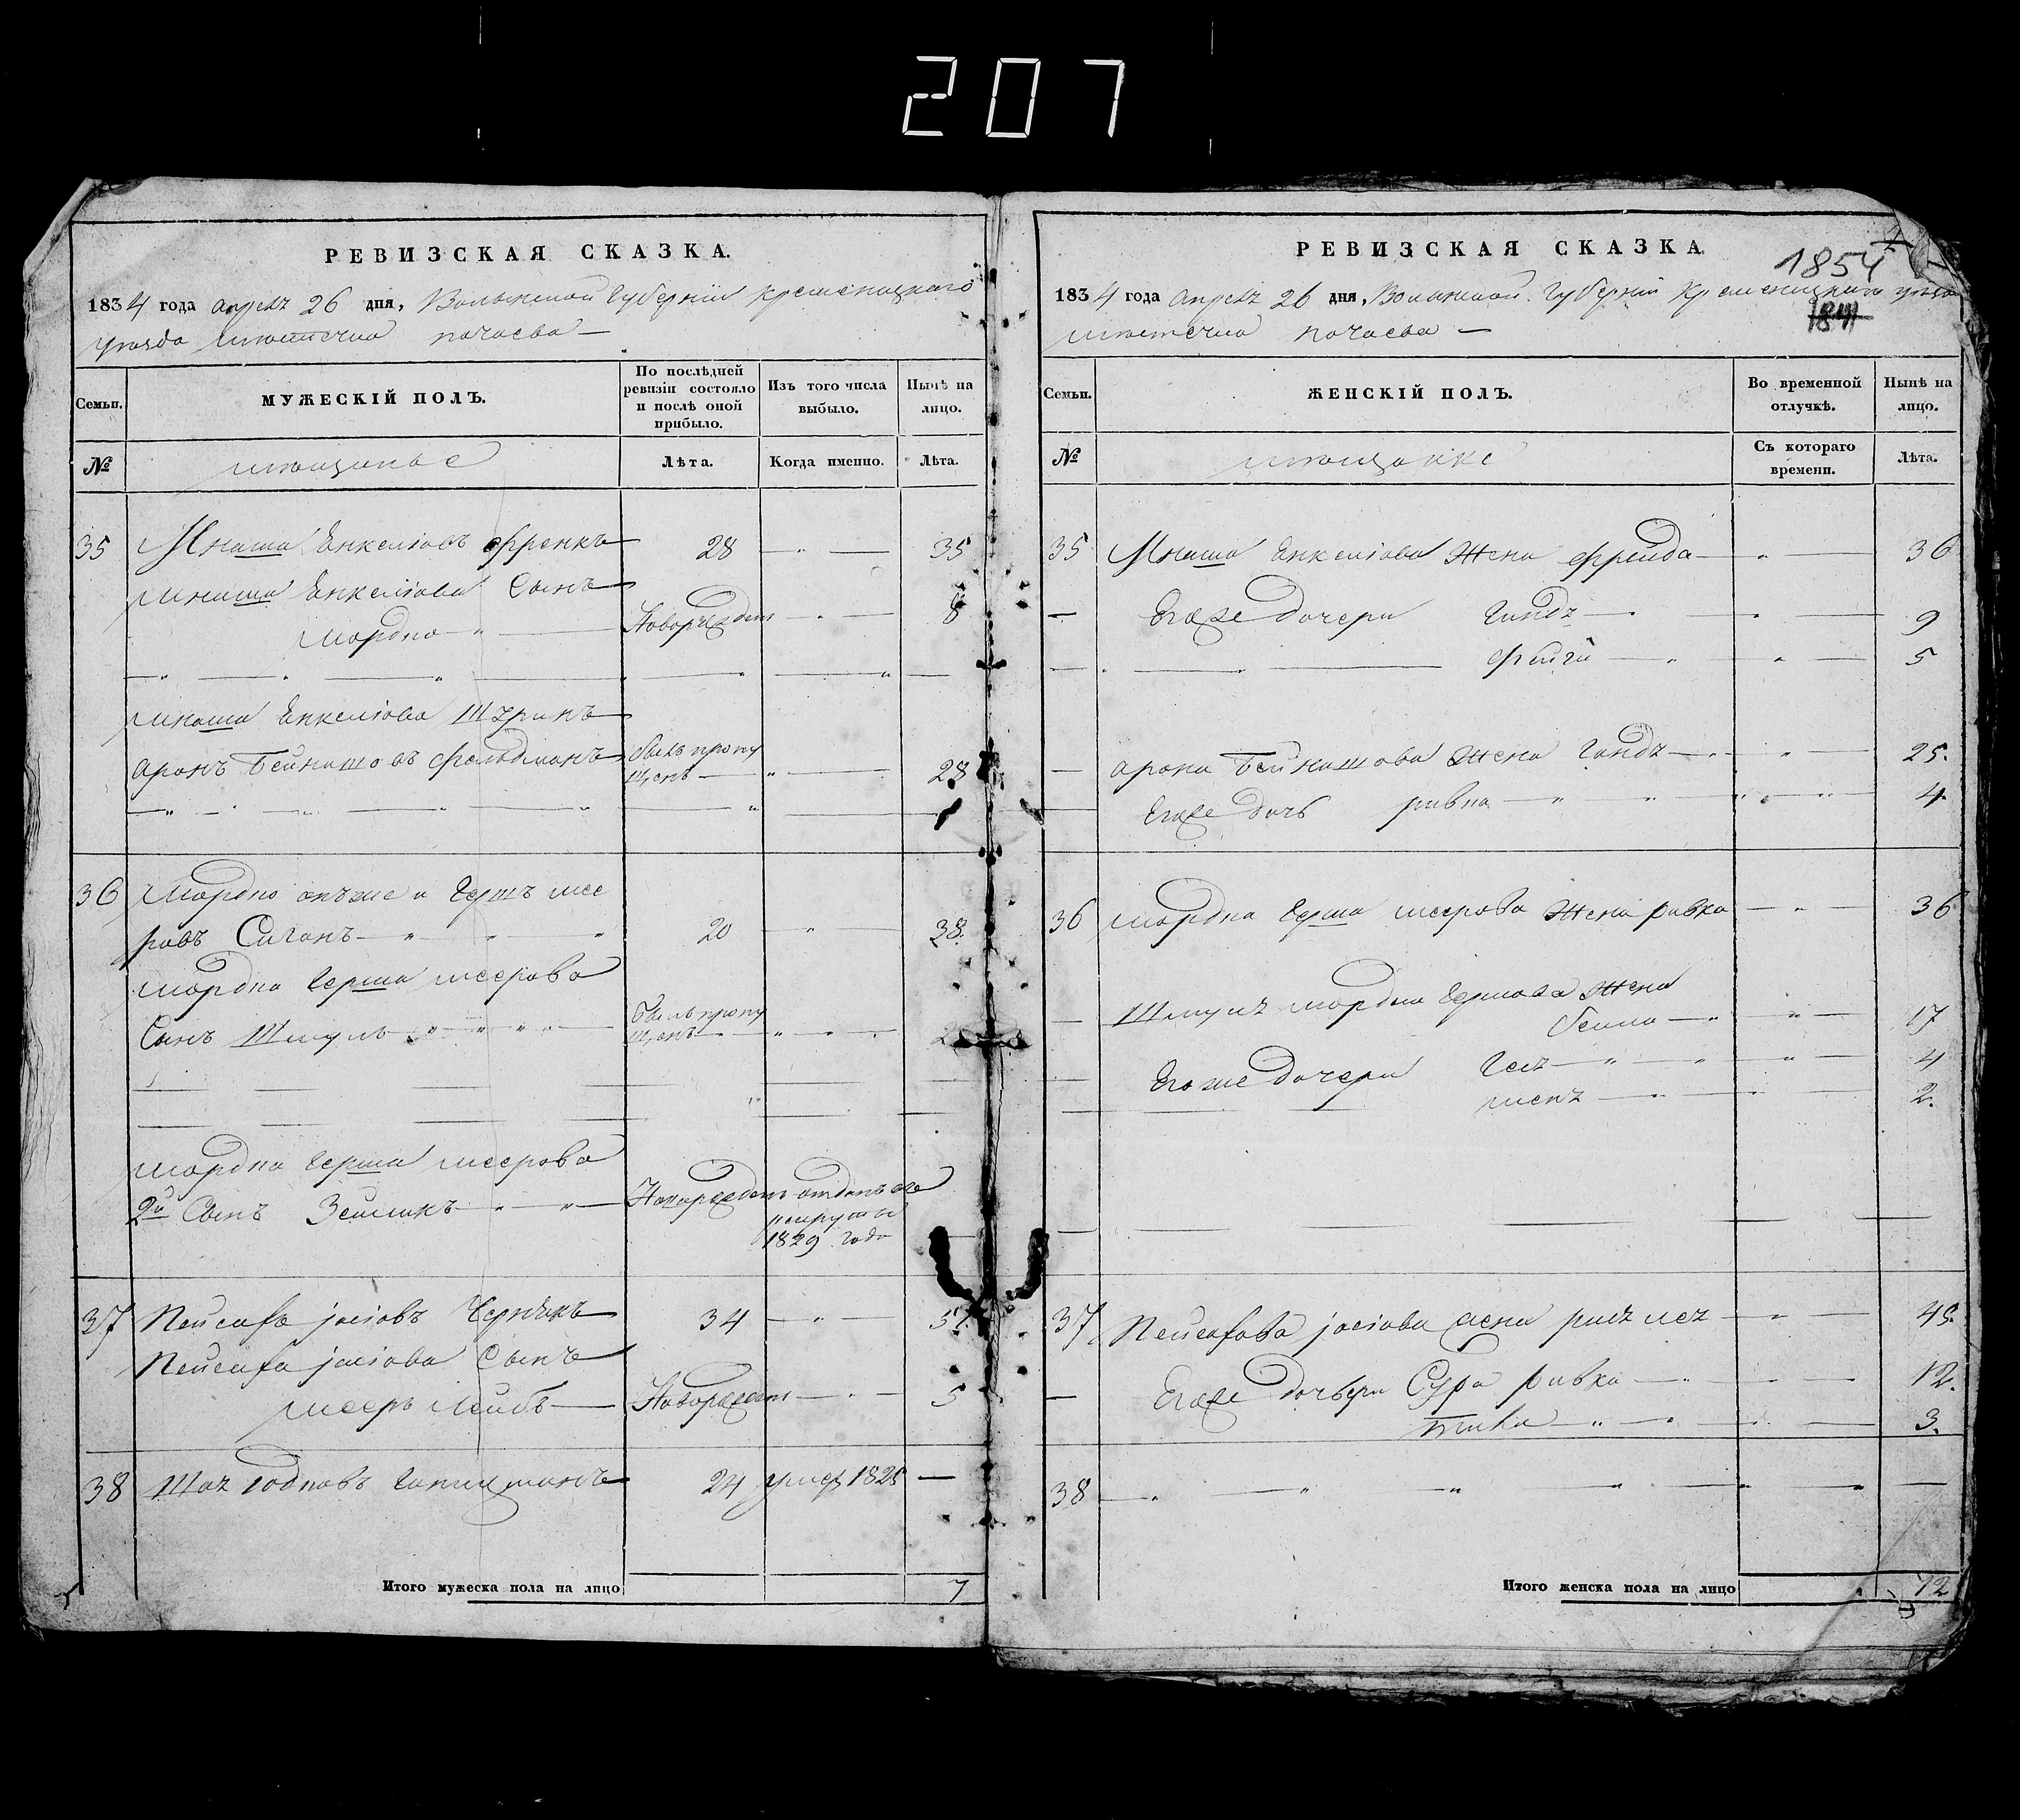 207
РЕВИЗСКАЯ СКАЗКА.
1834 года апреля 26 дня, Волынской Губернiи Кременецкаго
уезда местечка почаева —
Семьи. МУЖЕСКIЙ ПОЛЪ. По послѣдней ревизiи состояло и послѣ оной прибыло. Изъ того числа выбыло. Нынѣ на лицо.
№ мещанье Лѣта. Когда именно. Лѣта.
35 Мнаша Енкелiовъ Френкъ 28 — " — 35
Мнаша Енкелiова Сынъ
Мордко Новорожден — " — 8
Мнаша Енкелiова Шуринъ
аронъ Бейнишовъ Фельдманъ былъ пропу
щенъ — " — 28
36 Мордко онъже и Гершъ Мее
ровъ Сиганъ 20 " 38.
Мордка Герша Меерова
Сынъ Шмуль былъ пропу
щенъ
Мордка Герша Меерова
2й Сынъ Зейликъ Новорожден отданъ в
рекруты
1829 года
37 Пейсахъ Iосiовъ Чернякъ 34 — " — 51.
Пейсаха Iосiова Сынъ
Мееръ Лейбъ Новорожден — 5
38 24 умер 1825 —
Итого мужеска пола на лицо 7
РЕВИЗСКАЯ СКАЗКА
1854
1834 года апреля 26 дня, Волынской Губернiи Кременецкаго уезда
местечка почаева —
Семьи. ЖЕНСКIЙ ПОЛЪ. Во временной отлучкѣ. Нынѣ на лицо.
№ мещанке Съ котораго времени. Лѣта.
35 Мнаша Енкелiова Жена Фрейда — " — 36
— Егоже дочери Гиндя — 9
Фейги — " — 5
— арона Бейнишова Жена Гандя — " — 25.
Егоже дочь ривка — " — 4.
36 Мордка Герша Меерова Жена ривка — " — 36
— Шмуля Мордка Гершова Жена
бейла — " — 17
Егоже дочери Гея — " — 4
2.
37 Пейсахова Iосiова Жена 45.
— Егоже дочьери Сура ривка — 12.
3.
38 — " —
Итого женска пола на лицо 12